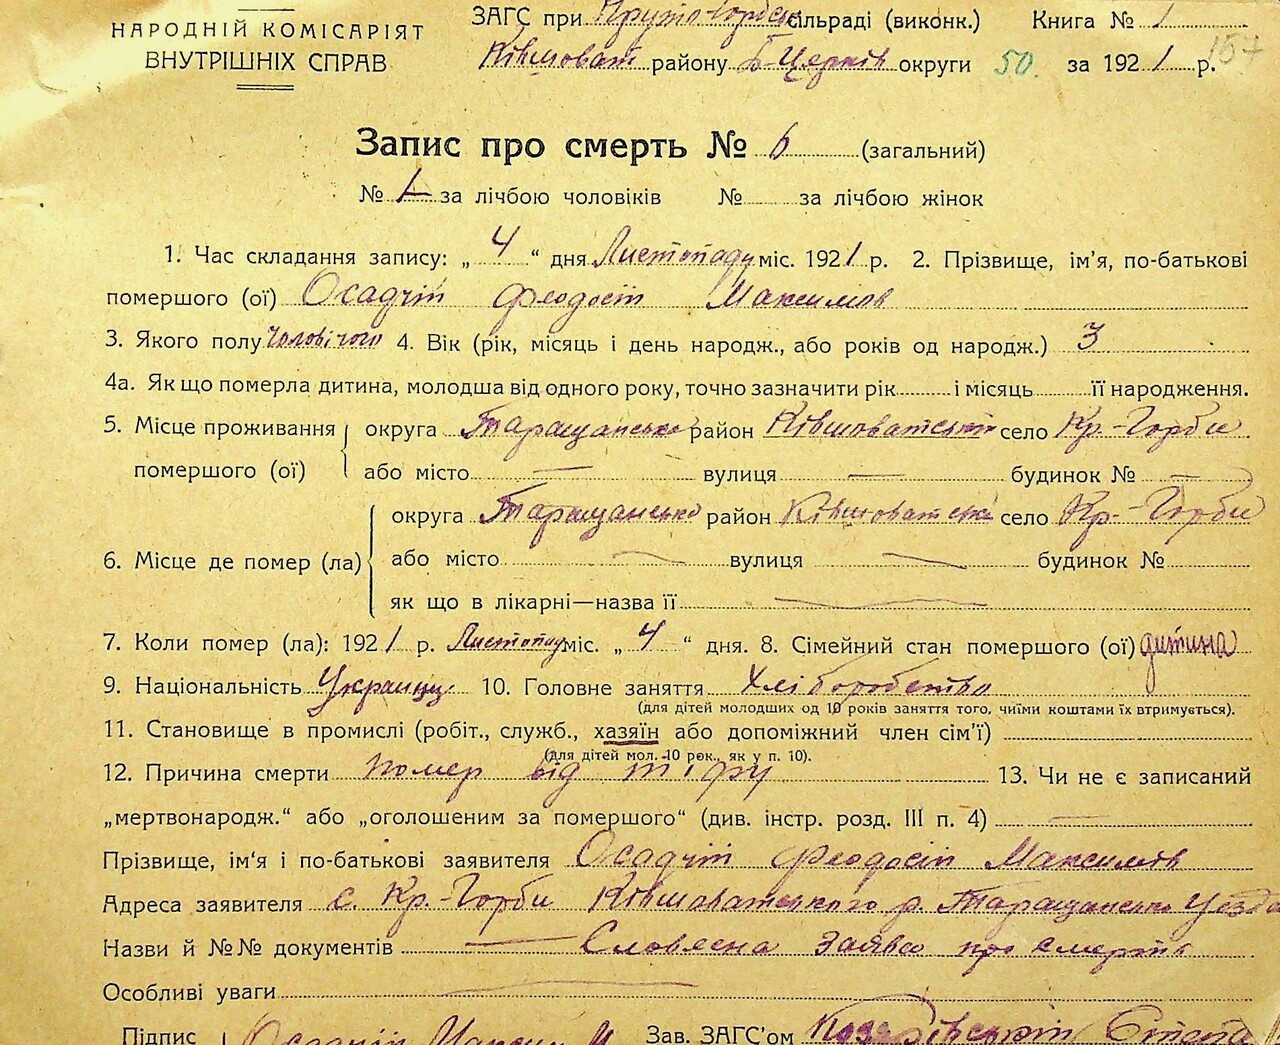 НАРОДНІЙ КОМІСАРІЯТ
ВНУТРІШНІХ СПРАВ
ЗАГС при сільраді (виконк.) Книга № 1
Ківшоват району Б-Церків округи 50. за 1921 р.
157
Запис про смерть № 6 (загальний)
№ 1 за лічбою чоловіків № за лічбою жінок
1. Час складання запису: „ 4 “ дня Листопаду міс. 1921 р. 2. Прізвище, ім'я, по-батькові
помершого (ої) Осадчій Феодосій Максимов
3. Якого полу чоловічого 4. Вік (рік, місяць і день народж., або років од народж.) 3
4а. Як що померла дитина, молодша від одного року, точно зазначити рік і місяць її народження.
5. Місце проживання помершого (ої) округа Таращансько район Ківшоватській село Кр.-Горби
або місто — вулиця — будинок № —
6. Місце де помер (ла) округа Таращансько район Ківшоватські село Кр.-Горби
або місто — вулиця — будинок №
як що в лікарні—назва її
7. Коли помер (ла): 1921 р. Листопад міс. „ 4 “ дня. 8. Сімейний стан помершого (ої) дитина
9. Національність Украинц 10. Головне заняття Хліборобство
(для дітей молодших од 10 років заняття того, чиїми коштами їх втримується).
11. Становище в промислі (робіт., служб., хазяїн або допоміжний член сім'ї)
(для дітей мол. 10 рок., як у п. 10).
12. Причина смерти помер від тіфу 13. Чи не є записаний
„мертвонародж.“ або „оголошеним за помершого“ (див. інстр. розд. III п. 4) —
Прізвище, ім'я і по-батькові заявителя Осадчій Феодосій Максимів
Адреса заявителя с. Кр.-Горби Ківшоватського р. Таращансько Уезда
Назви й №№ документів — Словесна заява про смерть
Особливі уваги
Підпис Осадчій Максим Зав. ЗАГС'ом